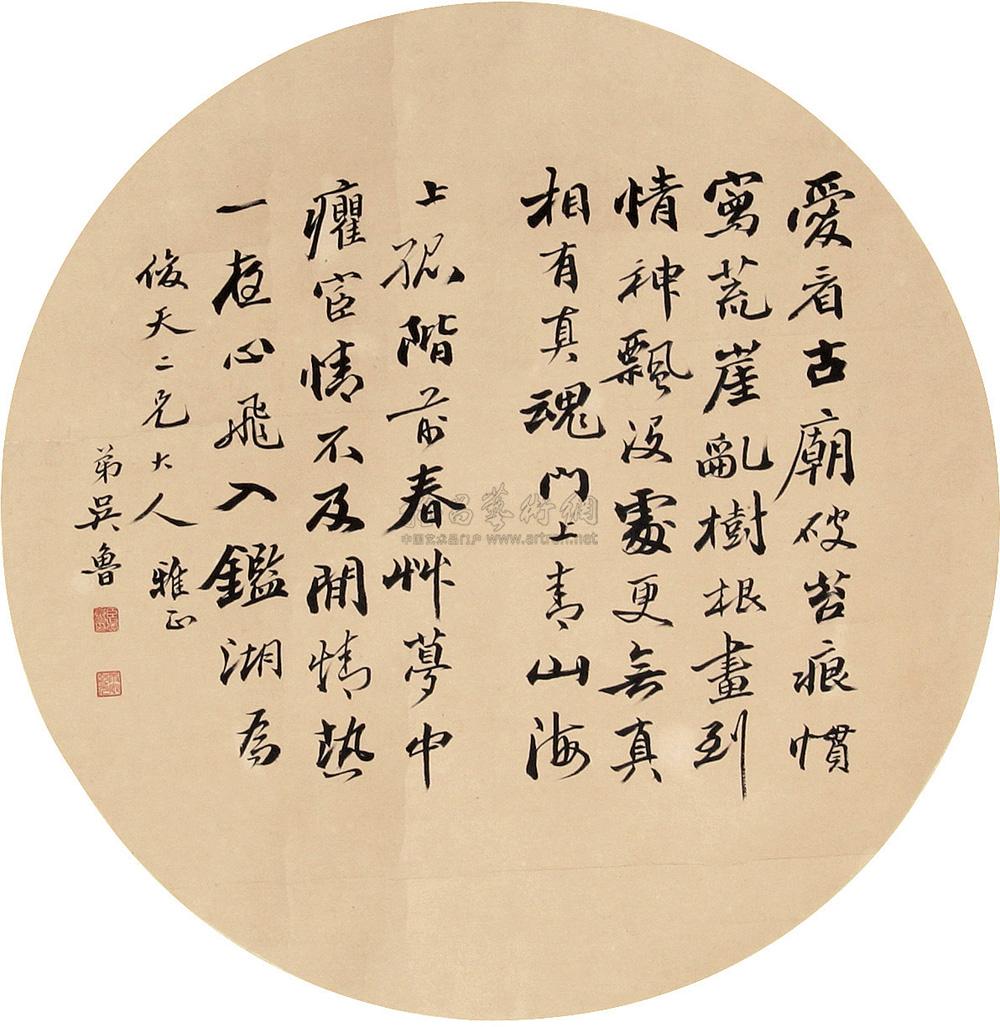 愛看古廟破苔痕慣
寫荒崖亂樹根畫到
情神飄沒處更無真
相有真魂門上青山海
上孤階前春艸夢中
癯宦情不及閒情熱
一夜心飛入鑑湖為
俊天二兄大人 雅正
弟吳魯
雅昌藝術網
中国艺术品门户 www.artron.net